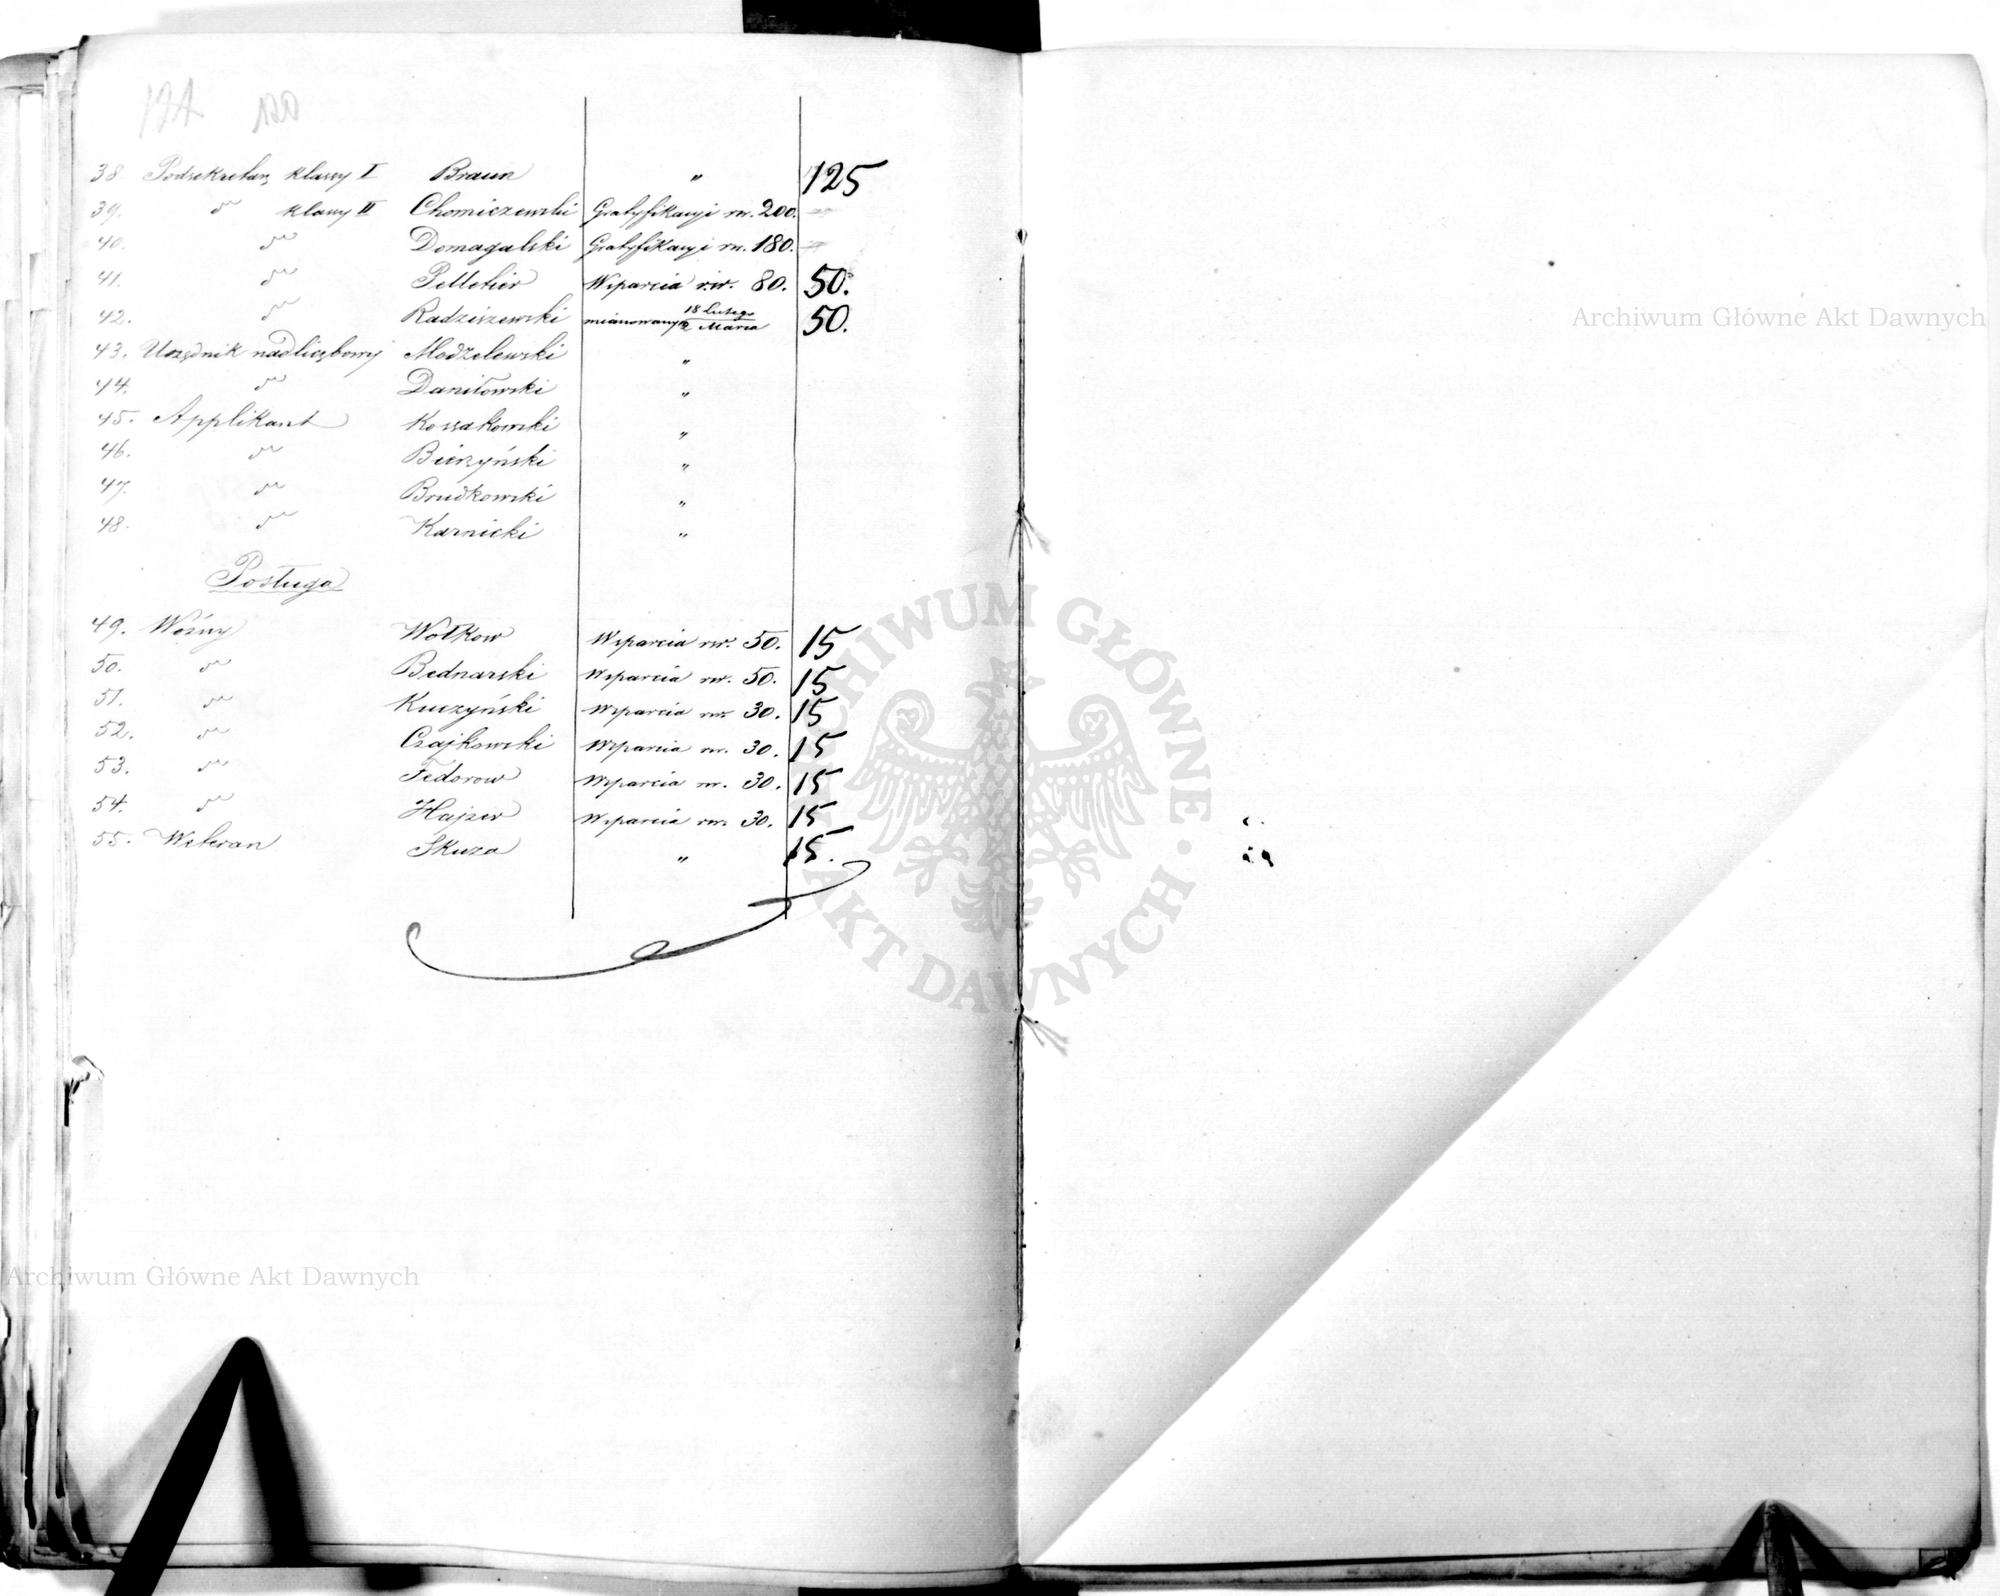 124 120
38. Podsekretarz klassy I Braun " 125
39. do klassy II Chomiczewski Gratyfikacyi rsr. 200.
40. do Domagalski Gratyfikacyi rsr. 180.
41. do Pelletier Wsparcia rsr. 80. 50.
42. do Radziszewski mianowany 18 Lutego / 2 Marca 50.
43. Urzędnik nadliczbowy Modzelewski "
44. do Daniłowski "
45. Applikant Kossakowski "
46. do Bierzyński "
47. do Brudkowski "
48. do Karnicki "
Posługa
49. Woźny Wołkow Wsparcia rsr. 50. 15
50. do Bednarski Wsparcia rsr. 50. 15
51. do Kuczyński Wsparcia rsr. 30. 15
52. do Czajkowski Wsparcia rsr. 30. 15
53. do Fedorow Wsparcia rsr. 30. 15
54. do Hajzer Wsparcia rsr. 30. 15
55. Weteran Skuza " 15.
Archiwum Główne Akt Dawnych
ARCHIWUM GŁÓWNE AKT DAWNYCH
Archiwum Główne Akt Dawnych